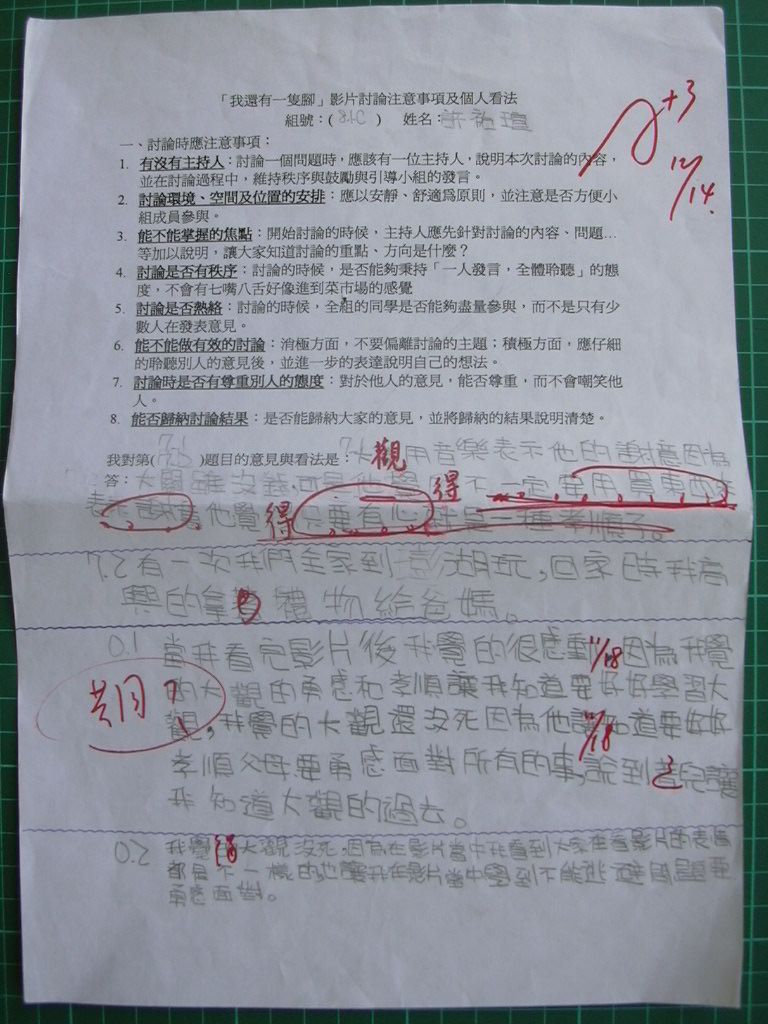 「我還有一隻腳」影片討論注意事項及個人看法
組號：( ) 姓名：許祐瑄
+3
12/14
一、討論時應注意事項：
1. 有沒有主持人：討論一個問題時，應該有一位主持人，說明本次討論的內容，
並在討論過程中，維持秩序與鼓勵與引導小組的發言。
2. 討論環境、空間及位置的安排：應以安靜、舒適為原則，並注意是否方便小
組成員參與。
3. 能不能掌握的焦點：開始討論的時候，主持人應先針對討論的內容、問題…
等加以說明，讓大家知道討論的重點、方向是什麼？
4. 討論是否有秩序：討論的時候，是否能夠秉持「一人發言，全體聆聽」的態
度，不會有七嘴八舌好像進到菜市場的感覺
5. 討論是否熱絡：討論的時候，全組的同學是否能夠盡量參與，而不是只有少
數人在發表意見。
6. 能不能做有效的討論：消極方面，不要偏離討論的主題；積極方面，應仔細
的聆聽別人的意見後，並進一步的表達說明自己的想法。
7. 討論時是否有尊重別人的態度：對於他人的意見，能否尊重，而不會嘲笑他
人。
8. 能否歸納討論結果：是否能歸納大家的意見，並將歸納的結果說明清楚。
我對第( )題目的意見與看法是： 大觀用音樂表示他的謝意因為
答：大觀雖沒錢 他覺得不一定要用買東西來
表示謝 他覺得只要有心就是一種孝順子。
7.2 有一次我們全家到澎湖玩，回家時我高
興的拿著禮物給爸媽。
0.1 當我看完影片後我覺的很感動，因為我覺
的大觀的勇感和孝順讓我知道要好好學習大
觀，我覺的大觀還沒死因為他讓 知道要好好
孝順父母要勇感面對所有的事，說到 兒讓
我知道大觀的過去。
11/18
11/18
0.2 我覺得大觀沒死，因為在影片當中我看到大家在看影片的表情
都是不一樣的也讓我在影片當中學到不能逃避問題要
勇感面對。